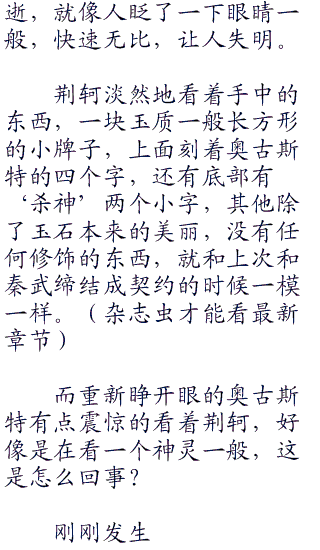 逝，就像人眨了一下眼睛一
般，快速无比，让人失明。
荆轲淡然地看着手中的
东西，一块玉质一般长方形
的小牌子，上面刻着奥古斯
特的四个字，还有底部有
‘杀神’两个小字，其他除
了玉石本来的美丽，没有任
何修饰的东西，就和上次和
秦武缔结成契约的时候一模
一样。（杂志虫才能看最新
章节）
而重新睁开眼的奥古斯
特有点震惊的看着荆轲，好
像是在看一个神灵一般，这
是怎么回事？
刚刚发生